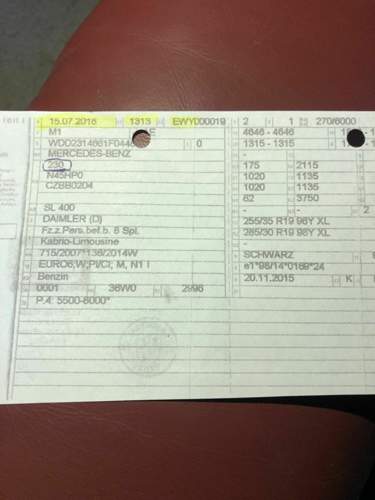 15.07.2016 1313 EWYD00019 2 1 270/6000
M1 E 4646 - 4646
WDD2314661F044 0 1315 - 1315
MERCEDES-BENZ -
230 175 2115
N45HP0 1020 1135
CZBB0204 1020 1135
62 3750
SL 400 -
DAIMLER (D) - 2
Fz.z.Pers.bef.b. 8 Spl. 255/35 R19 96Y XL
Kabrio-Limousine 285/30 R19 98Y XL
715/2007*136/2014W -
EURO6;W;PI/CI; M, N1 I SCHWARZ
Benzin e1*98/14*0169*24
0001 36W0 2996 20.11.2015 K
P.4: 5500-6000*